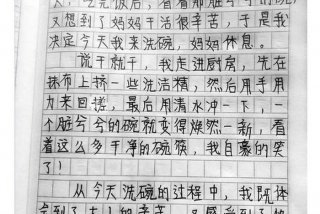 天，吃完饭后，看着那脏兮兮的碗，
又想到了妈妈干活很辛苦，于是我
决定今天我来洗碗，妈妈休息。
说干就干，我走进厨房，先在
抹布上挤一些洗洁精，然后用手用
力来回搓，最后用清水冲一下，一
个脏兮兮的碗就变得焕然一新，看
着这么多干净的碗筷，我自豪的笑
了！
从今天洗碗的过程中，我既体
会到了大人的辛苦，又感受到